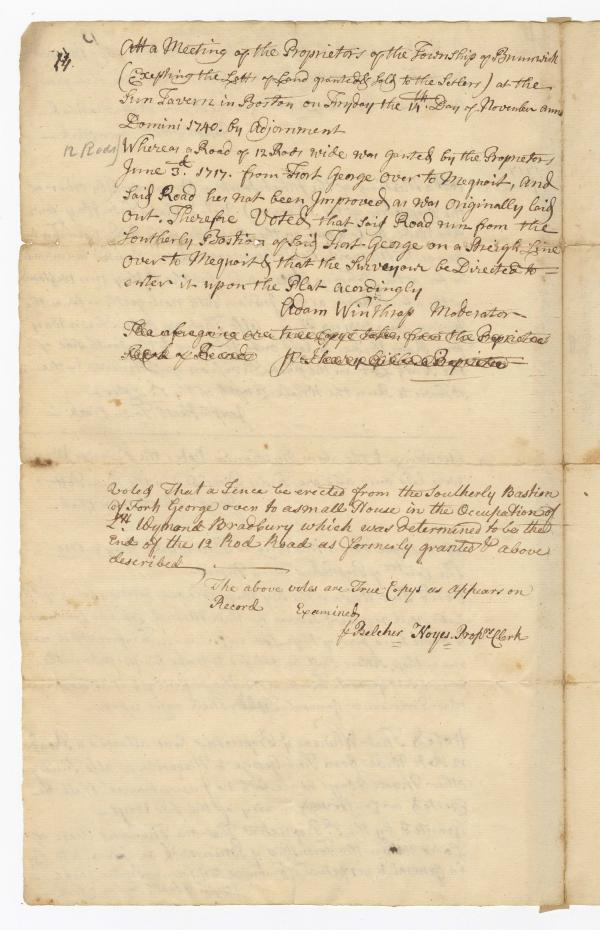 Att a Meeting of the Proprietors of the Township of Brunswick
(Excepting the Letts of Land granted & Sold to the Setlers) at the
Sun Tavern in Boston on Fryday the 14th. Day of November anno
Domini 1740. by Adjornment
12 Rods) Whereas a Road of 12 Rods wide was ganted by the Proprietors
June 3d. 1717. from Fort George over to Mequoit, and
said Road hes not been Improved as was originally laid
out. Therefre Voted, that said Road run from the
Southerly Bastion of said Fort George on a Streigh Line
over to Mequoit & that the Surveyour be Directed to
enter it upon the Plat acordingly
Adam Winthrop Moderator
The aforegoing are true Copys taken from the Proprietors
Book of Records
Voted That a Fence be erected from the Southerly Bastion
of Fort George over to a small House in the Occupation of
Lt. Wymond Bradbury which was determined to be the
End of the 12 Rod Road as formerly granted & above
described
The above votes are True Copys as appears on
Record Examined
Belcher Noyes. Prop.rs Clerk